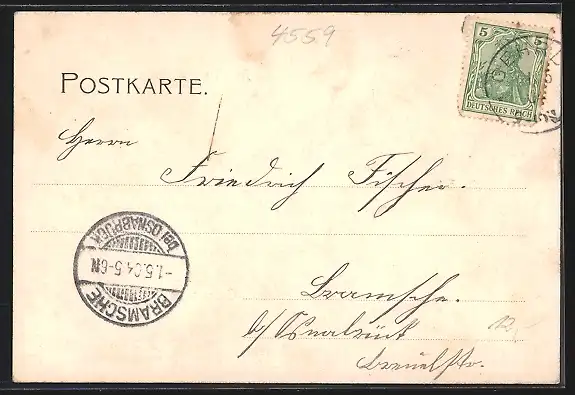 4559
5 5
DEUTSCHES REICH
POSTKARTE.
Herrn
Friedrich Fischer.
BRAMSCHE
-1.5.04.5-6N
bei OSNABRÜCK
Bramsche.
b/ Osnabrück
12,-